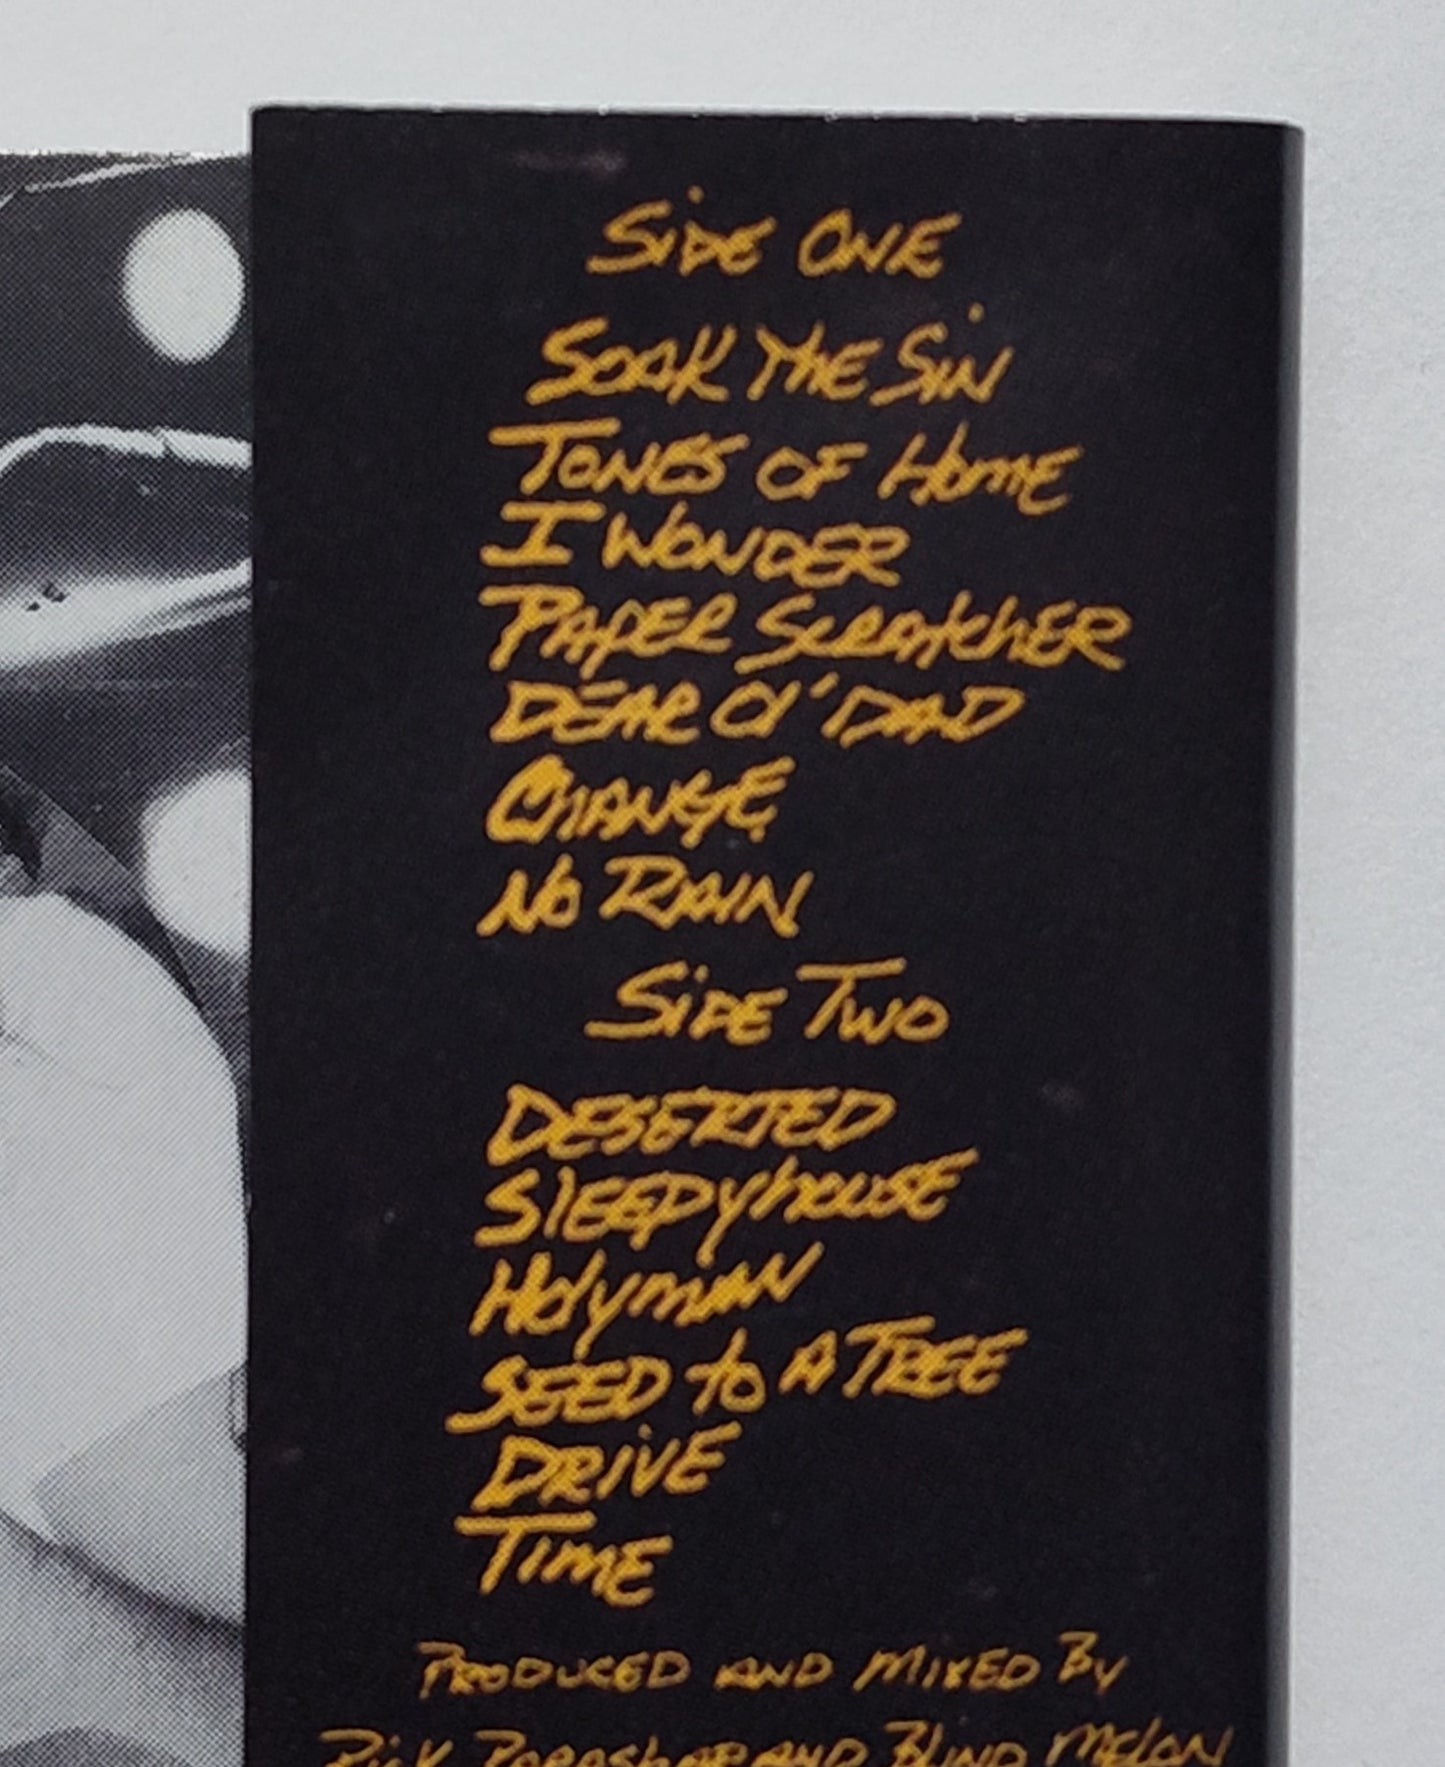 SiDE ONE
SOAK THE SiN
TONES OF HOmE
I WONDER
PAPER SCRATchER
DEAR Ol' DAD
CHANGE
No RAIN
SiDE TWO
DESERTED
SlEEPyhouSE
HolymAN
SEED to A TREE
DRiVE
TimE
PRODUCED AND MIXED By
RicK PARAShAR AND BliND MELON